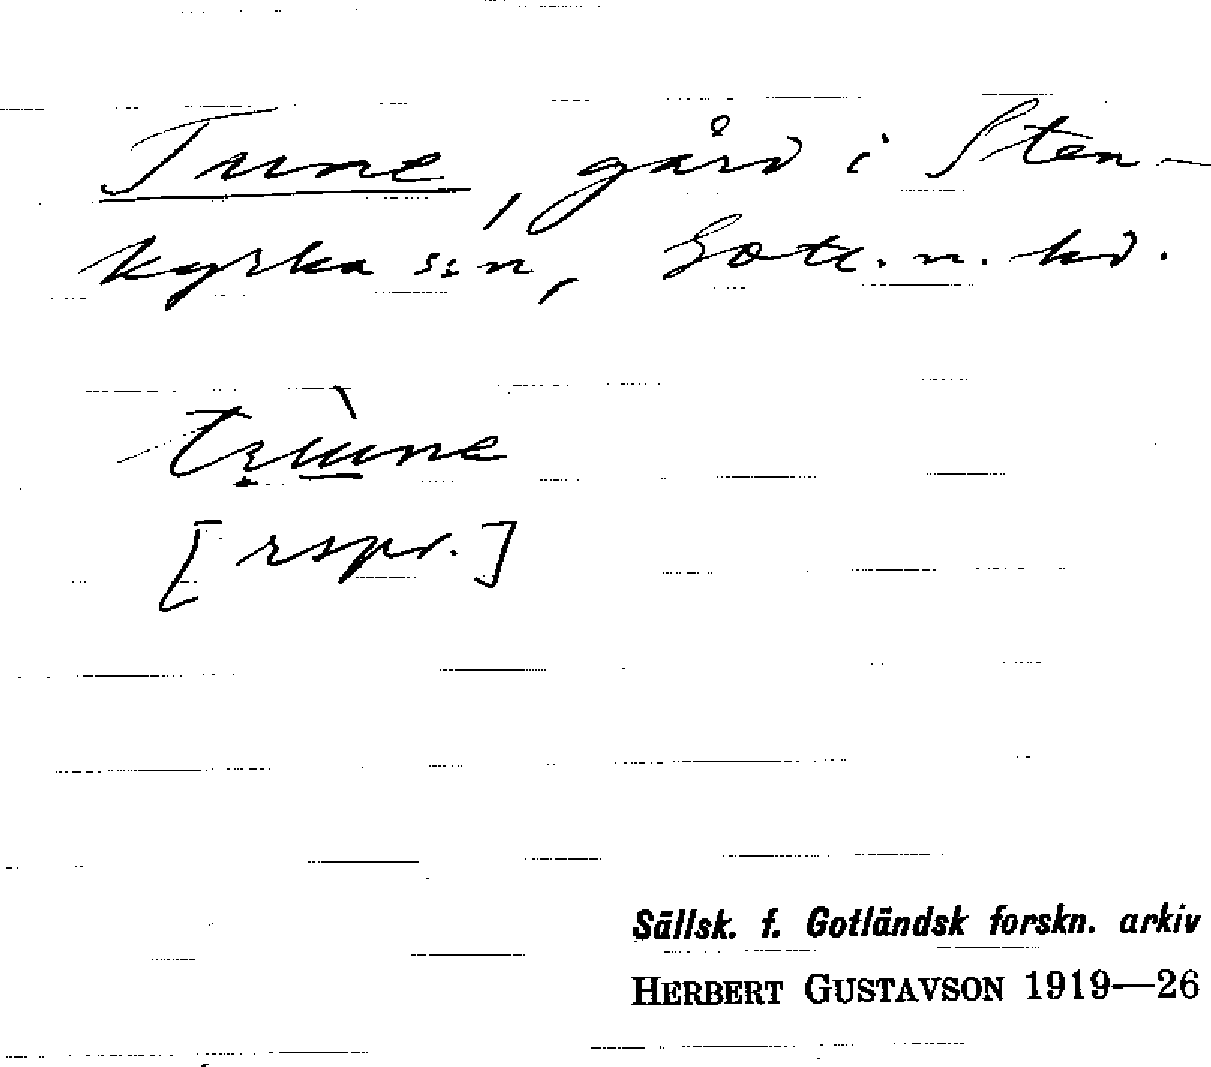 Tune, gård i Sten-
kyrka sn, Gotl. n. hd.
[rspr.]
Sällsk. f. Gotländsk forskn. arkiv
HERBERT GUSTAVSON 1919—26